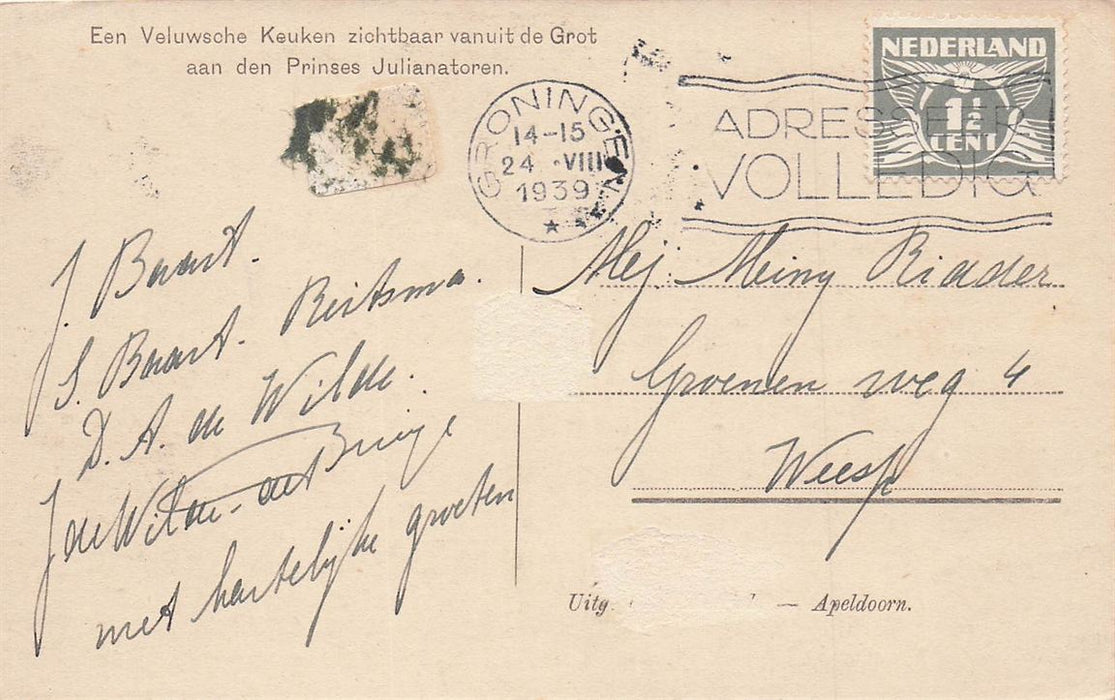 Een Veluwsche Keuken zichtbaar vanuit de Grot
aan den Prinses Julianatoren.
NEDERLAND
1½
CENT
GRONINGEN
14-15
24 VIII
1939
ADRESSEER
VOLLEDIG
J. Baart.
S. Baart. Reitsma.
D. A. de Wilde.
J de Wilde-
met hartelijke groeten
Mej. Meiny Ridder
Groenen weg 4
Weesp
Uitg. — Apeldoorn.